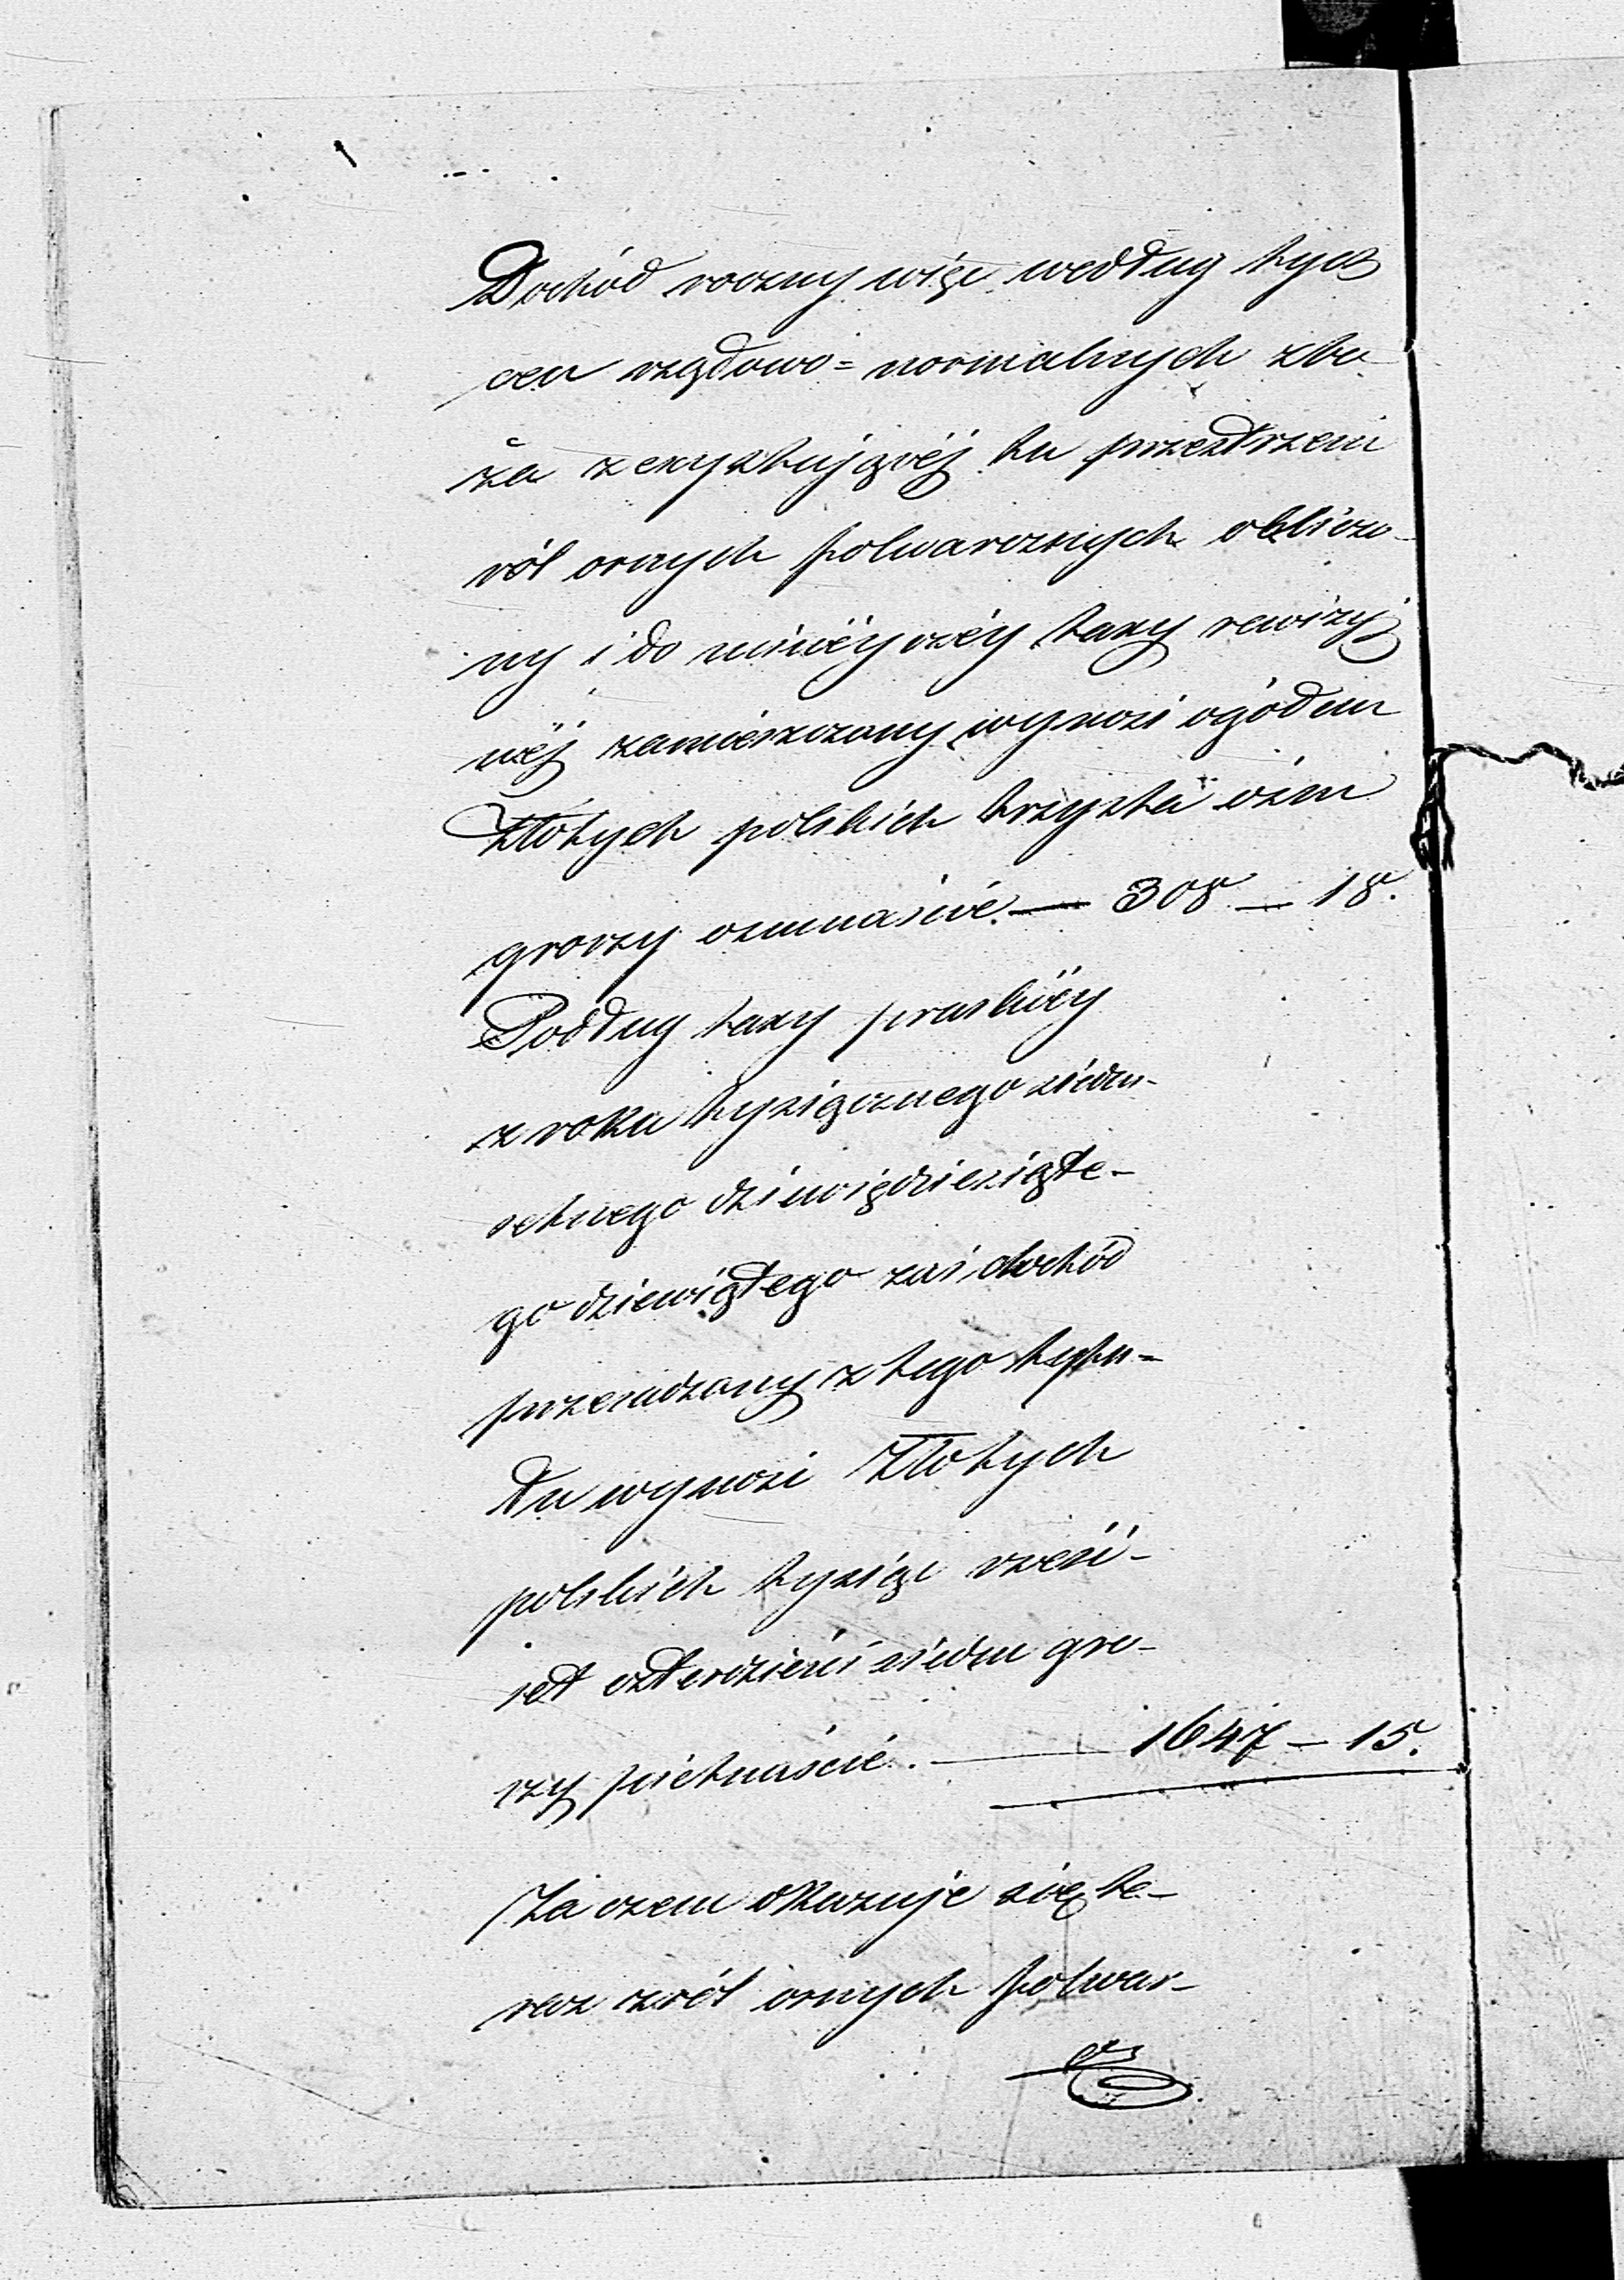 Dochód roczny więc według tych
cen rządowo=normalnych zbo-
ża z exystującéj tu przestrzeni
ról ornych folwarcznych obliczo-
ny i do niniéyszéy taxy rewizyj
néj zamieszczony wynosi ogółem
Złotych polskich trzysta ośm
groszy ośmnaście. — 308 — 18.
Podług taxy pruskiéy
z roku tysiącznego siedm-
setnego dziewiędziesiąte-
go dziewiątego zaś dochód
przesadzony z tego tytu=
łu wynosi Złotych
polskich tysiąc sześć-
set czterdzieści siedm gro-
szy piętnaście. — 1647 — 15.
Za czem okazuje się te-
raz z ról ornych folwar-